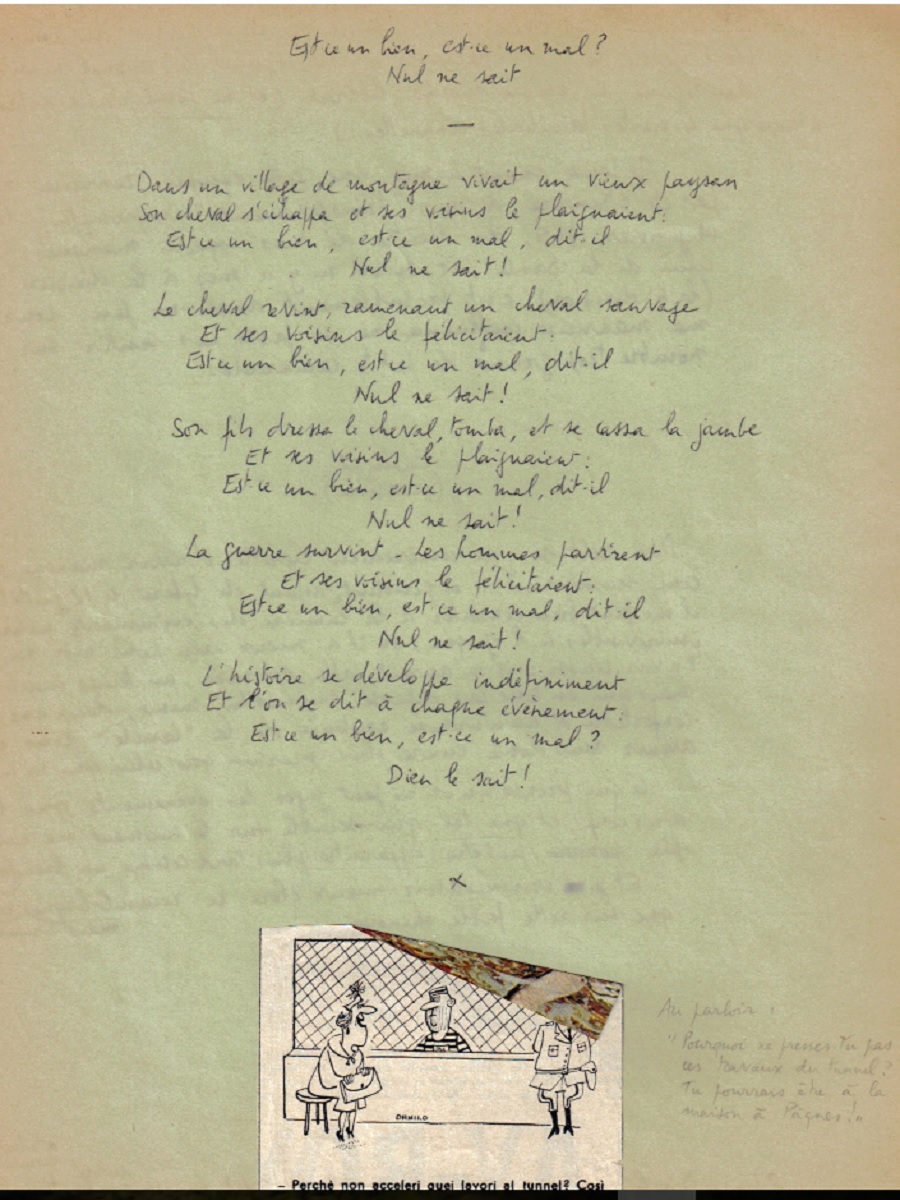 Est-ce un bien, est-ce un mal ?
Nul ne sait
Dans un village de montagne vivait un vieux paysan
Son cheval s'échappa et ses voisins le plaignaient :
Est-ce un bien, est-ce un mal, dit-il
Nul ne sait !
Le cheval revint, ramenant un cheval sauvage
Et ses voisins le félicitaient :
Est-ce un bien, est-ce un mal, dit-il
Nul ne sait !
Son fils dressa le cheval, tomba, et se cassa la jambe
Et ses voisins le plaignaient :
Est-ce un bien, est-ce un mal, dit-il
Nul ne sait !
La guerre survint - Les hommes partirent
Et ses voisins le félicitaient :
Est-ce un bien, est-ce un mal, dit-il
Nul ne sait !
L'histoire se développe indéfiniment
Et l'on se dit à chaque évènement :
Est-ce un bien, est-ce un mal ?
Dieu le sait !
x
Au parloir :
"Pourquoi ne presses-tu pas
ces travaux du tunnel ?
Tu pourrais être à la
maison à Pâques !"
- Perchè non acceleri quei lavori al tunnel? Così